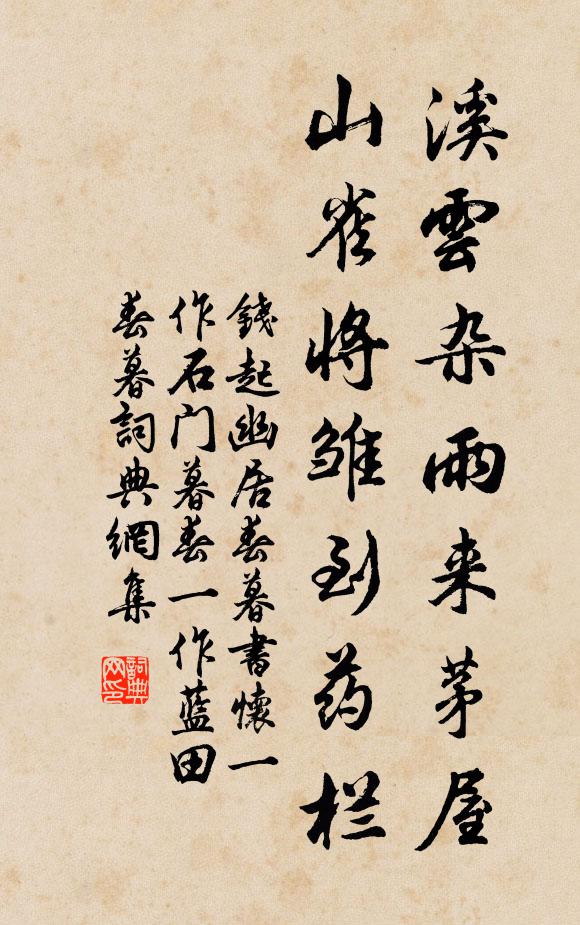 溪雲杂雨来茅屋
山雀将雏到药栏
錢起幽居春暮書懷一
作石门暮春一作藍田
春暮詞典網集
詞典网印